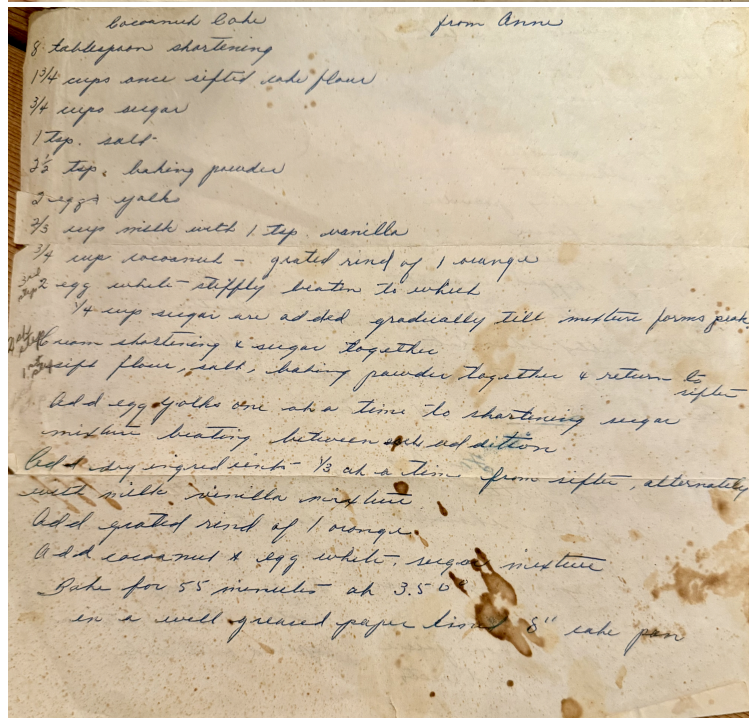 Cocoanut Cake from Anne
8 tablespoon shortening
1 3/4 cups once sifted cake flour
3/4 cups sugar
1 tsp. salt
2 1/2 tsp. baking powder
2 eggs yolks
2/3 cup milk with 1 tsp. vanilla
3/4 cup cocoanut - grated rind of 1 orange
3rd step 2 egg white stiffly beaten to which
1/4 cup sugar are added gradually till mixture forms peaks
2nd step Cream shortening & sugar together
1st step sift flour, salt, baking powder together & return to sifter
Add egg yolks one at a time to shortening sugar
mixture beating between each addition
Add dry ingredients 1/3 at a time from sifter, alternately
with milk vanilla mixture
Add grated rind of 1 orange.
Add cocoanut & egg white, sugar mixture
Bake for 55 minutes at 350°
in a well greased paper lined 8" cake pan